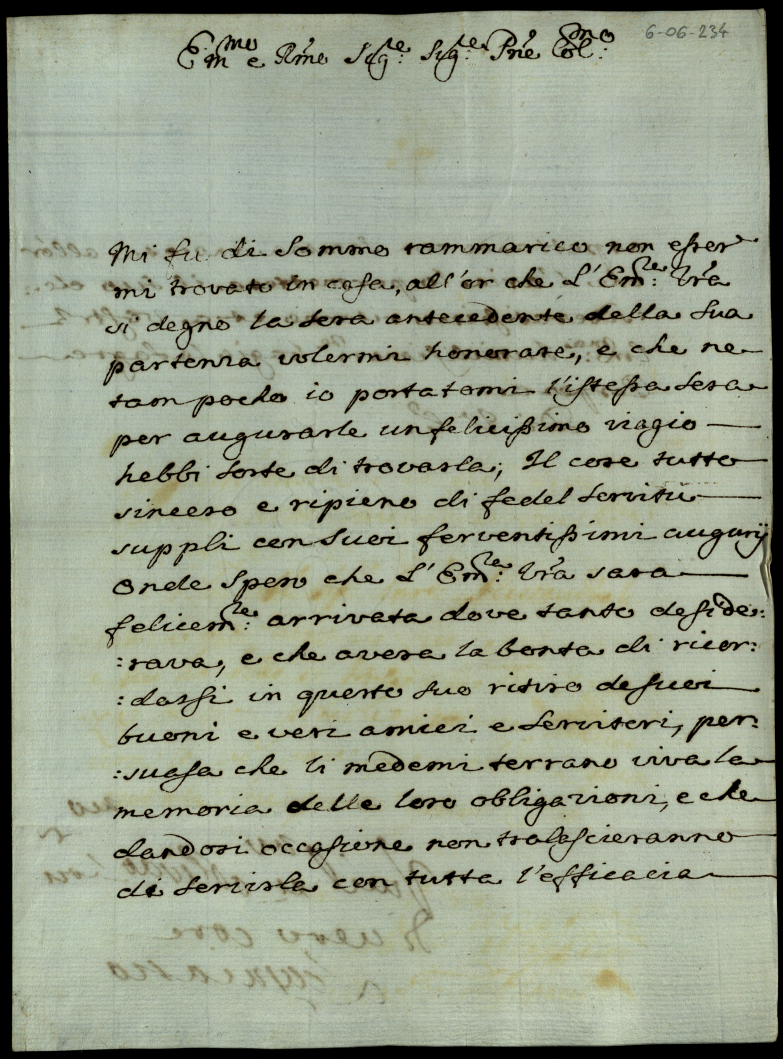 6-06-234
Em.mo e Rmo Sig.re Sig.re Pne Col.mo
Mi fu di sommo rammarico non esser
mi trovato in casa, all'or che L'Em.ze Vra
si degno la sera antecedente della sua
partenza volermi honorare, e che ne
tam poche io portatomi l'istessa sera
per augurarle un felicissimo viagio
hebbi sorte di trovarla; Il core tutto
sincero e ripieno di fedel servitù
suppli con suoi ferventissimi augurij
Onde spero che L'Em.ze Vra sara
felicem.te arrivata dove tanto deside:
:rava, e che avera la bonta di ricor:
:darsi in questo suo ritiro de suoi
buoni e veri amici e servitori, per:
:suasa che li medemi terrano viva la
memoria delle loro obligazioni, e che
dandosi occasione non tralascieranno
di servirla con tutta l'efficacia